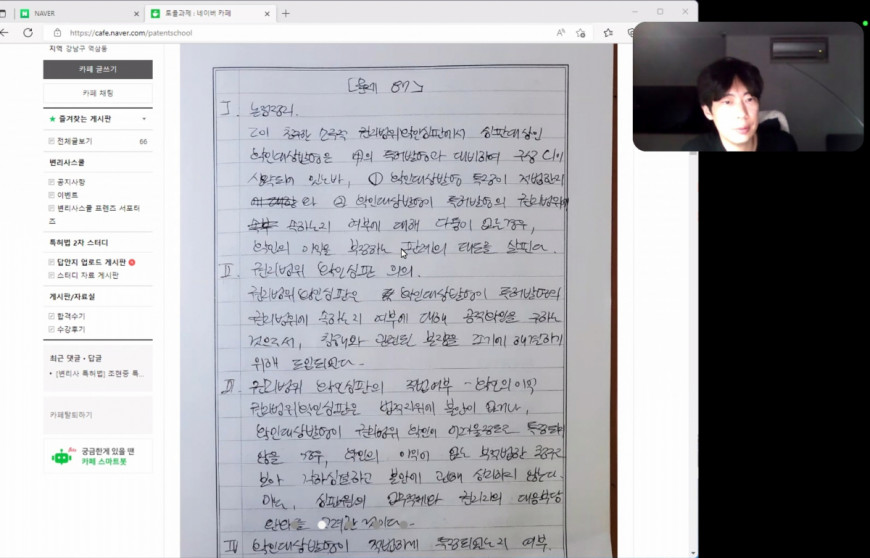 NAVER
토출과제 : 네이버 카페
https://cafe.naver.com/patentschool
지역 강남구 역삼동
카페 글쓰기
카페 채팅
즐겨찾는 게시판
전체글보기 66
변리사스쿨
공지사항
이벤트
변리사스쿨 프렌즈 서포터
즈
특허법 2차 스터디
답안지 업로드 게시판
스타디 자료 게시판
게시판/자료실
합격수기
수강후기
최근 댓글 · 답글
[변리사 특허법] 조현중 특...
카페탈퇴하기
궁금한게 있을 땐
카페 스마트봇
[문제 67]
I. 논점정리.
청구한 소극적 권리범위확인심판에서 심판대상인
확인대상발명은 甲의 특허발명과 대비하여 구성 C이
생략되어 있는바, ① 확인대상발명 특정이 적법한지
와 ② 확인대상발명이 특허발명의 권리범위에
속하는지 여부에 대해 다툼이 없는 경우,
확인의 이익을 부정하는 판례의 태도를 살핀다.
II. 권리범위 확인심판 의의.
권리범위확인심판은 확인대상발명이 특허발명의
권리범위에 속하는지 여부에 대해 공적확인을 구하는
것으로서, 침해와 관련된 분쟁을 조기에 해결하기
위해 도입되었다.
III. 권리범위 확인심판의 적법여부 - 확인의 이익
권리범위확인심판은 법적지위에 불안이 있거나,
확인대상발명이 권리범위 확인이 어려울정도로 특정되지
않을 경우, 확인의 이익이 없는 부적법한 청구로
보아 각하심결하고 본안에 관해 심리하지 않는다.
이는, 심판원의 업무경제와 권리자의 대응부담
고려한 것이다.
IV. 확인대상발명이 적법하게 특정되었는지 여부.